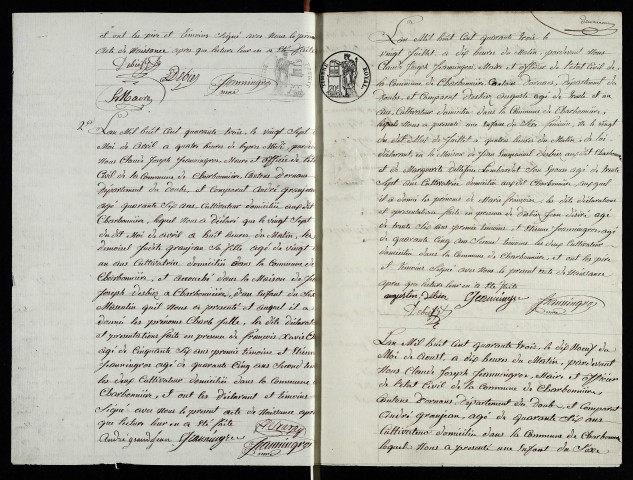 et ont les père et témoins signé avec nous le présent
acte de Naissance après que lecture leur en a été faite
Jeanningros
maire
2e
L'an Mil huit cent quarante trois, le vingt sept du
Moi de avril a quatre heures de après Midi, pardevant
Nous Claude Joseph Jeanningros, Maire et officier de l'état
Civil de la Commune de Charbonnière Canton d'ornans
Département du doubs, et Comparut André granjean
agé quarante six ans Cultivateur domicilié audit
Charbonnière, lequel Nous a déclaré que le vingt sept
du dit Moi de avril a huit heures du Matin, la
demoisel granjean sa fille agé de vingt
un ans Cultivatrice domicilié dans la commune de
Charbonnière, et accouché dans la Maison de
Joseph a Charbonnière, d'un Enfant du Sexe
Masculin qu'il Nous a présenté et auquel il a
donné les prénoms Charle les dite déclaration
et présentations faite en présence de François Xavier
agé de Cinquante Six ans premier témoins et Etienne
Jeanningros agé de quarante Cinq ans Second témoins
les deux Cultivateur domicilié dans la Commune de
Charbonnière, et ont les déclarant et témoins
Signé avec Nous le présent acte de Naissance après
que lecture leur en a été faite
André grandjean Jeanningros
Jeanningros
maire
TIMBRE ROYAL
L'an Mil huit Cent quarante trois le
vingt Juillet, a dix heures du Matin, pardevant Nous
Claude Joseph Jeanningros, Maire et officier de l'état Civil de
la Commune de Charbonnière Canton d'ornans, département du
doubs, et Comparut auguste agé de trente et
un ans Cultivateur domicilié dans la Commune de Charbonnière,
lequel Nous a présenté un Enfant du Sexe féminin, né le vingt
du dit Moi de Juillet a quatre heures du Matin, de lui
déclarant en la Maison de audit Charbonnière
et de Marguerite Son Epouse agé de trente
Sept ans Cultivatrice domicilié au dit Charbonnière, auquel
il a donné les prénoms de Marie françoise, les dite déclarations
et présentations faite en présence de agé
de trente Six ans premier témoins et Etienne Jeanningros, agé
de quarante Cinq ans Second témoins les deux Cultivateur
domicilié dans la Commune de Charbonnière, et ont les père
et témoins Signé avec Nous le présent acte de Naissance
après que lecture leur en a été faite
Jeanningros Jeanningros
maire
L'an Mil huit Cent quarante trois, le dix Neuf du
Moi de aoust, a dix heures du Matin, pardevant
Nous Claude Joseph Jeanningros, Maire et officier
de l'état Civil de la Commune de Charbonnière,
Canton d'ornans département du doubs, et Comparut
André granjean, agé de quarante Six ans
Cultivateur domicilié dans la Commune de Charbonnière
lequel Nous a présenté une Enfant du Sexe